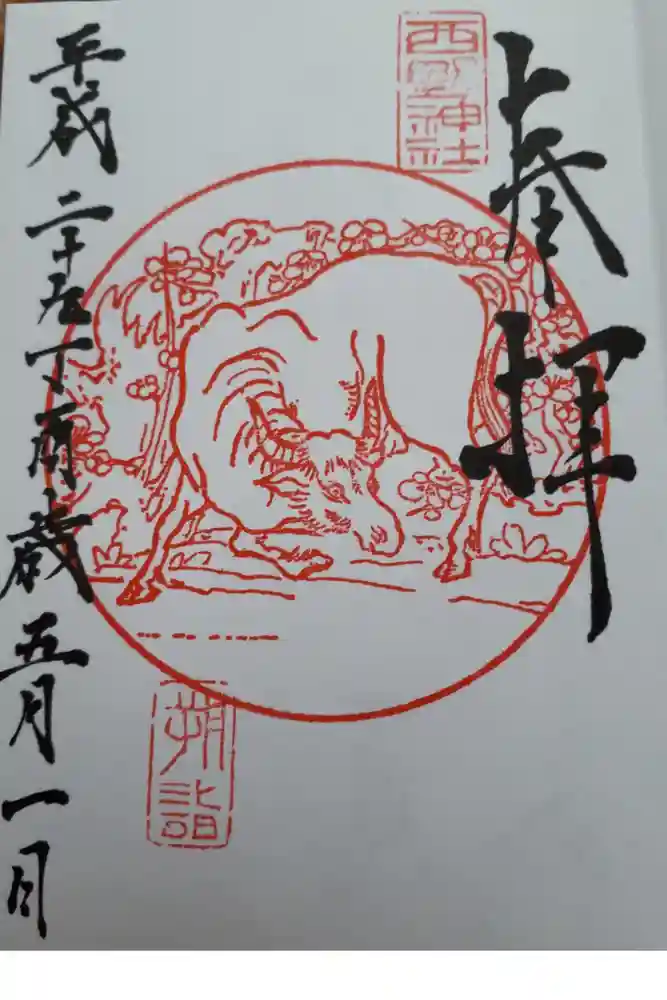 奉拝
西野神社
朔詣
平成二十九丁酉歳五月一日